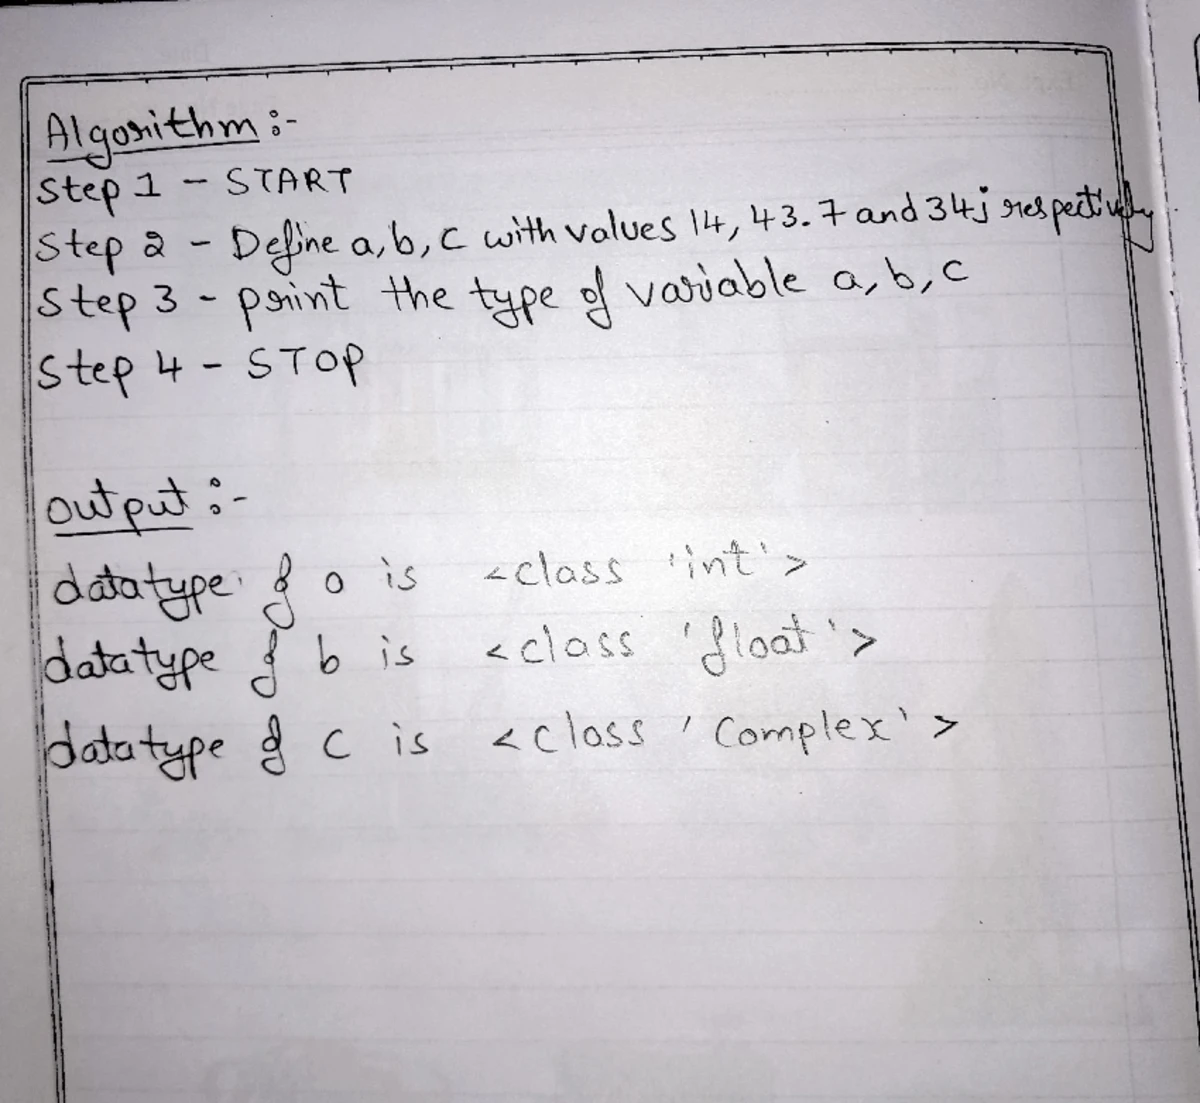 Algorithm :-
Step 1 - START
Step 2 - Define a, b, c with values 14, 43.7 and 34j respectively
Step 3 - print the type of variable a, b, c
Step 4 - STOP
output :-
datatype of a is <class 'int'>
datatype of b is <class 'float'>
datatype of c is <class 'Complex'>